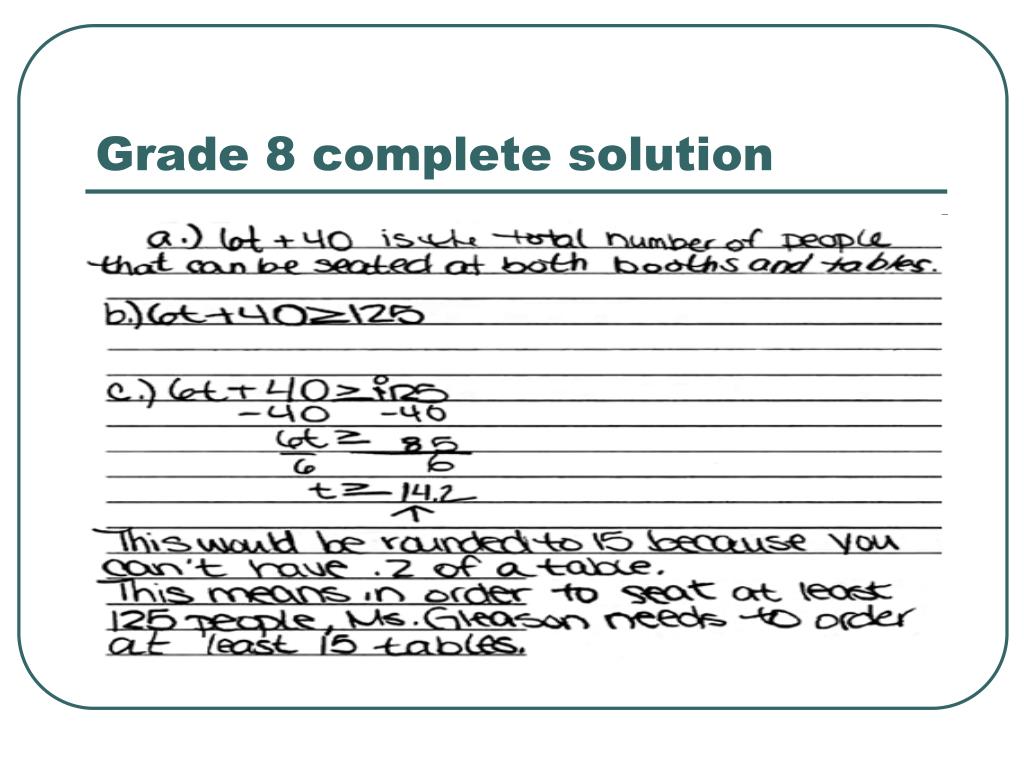 Grade 8 complete solution
a.) 6t + 40 is the total number of people
that can be seated at both booths and tables.
b.) 6t + 40 ≥ 125
c.) 6t + 40 ≥ 125
-40 -40
6t ≥ 85
6 6
t ≥ 14.2
↑
This would be rounded to 15 because you
can't have .2 of a table.
This means in order to seat at least
125 people, Ms. Gleason needs to order
at least 15 tables.